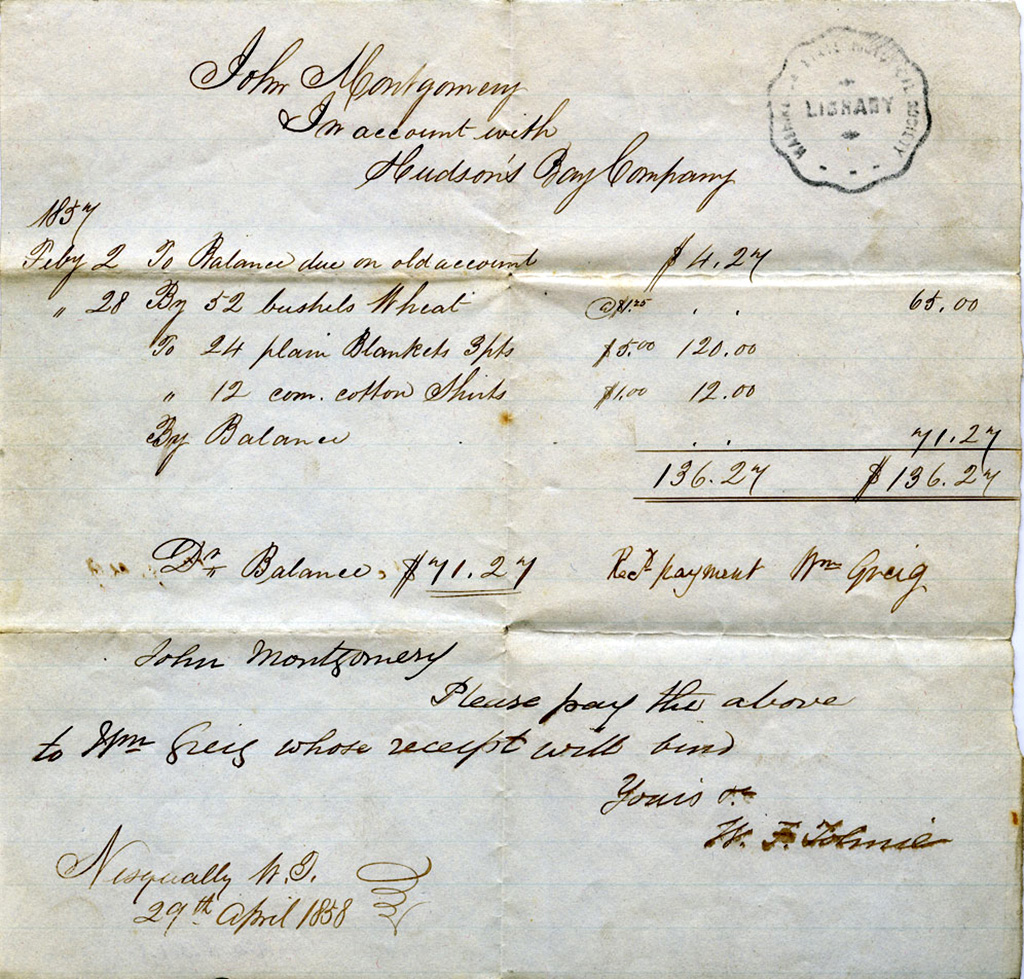 John Montgomery
In account with
Hudson's Bay Company
LIBRARY
SOCIETY
1857
Feby 2 To Balance due on old account $4.27
" 28 By 52 bushels Wheat @ $1.25 . . 65.00
To 24 plain Blankets 3pts $5.00 120.00
" 12 com. cotton Shirts $1.00 12.00
By Balance . . 71.27
136.27 $136.27
Dr Balance, $71.27 Recd payment Wm Greig
John Montgomery
Please pay the above
to Wm Greig whose receipt will bind
Yours &c
W. F. Tolmie
Nisqually W.T.
29th April 1858